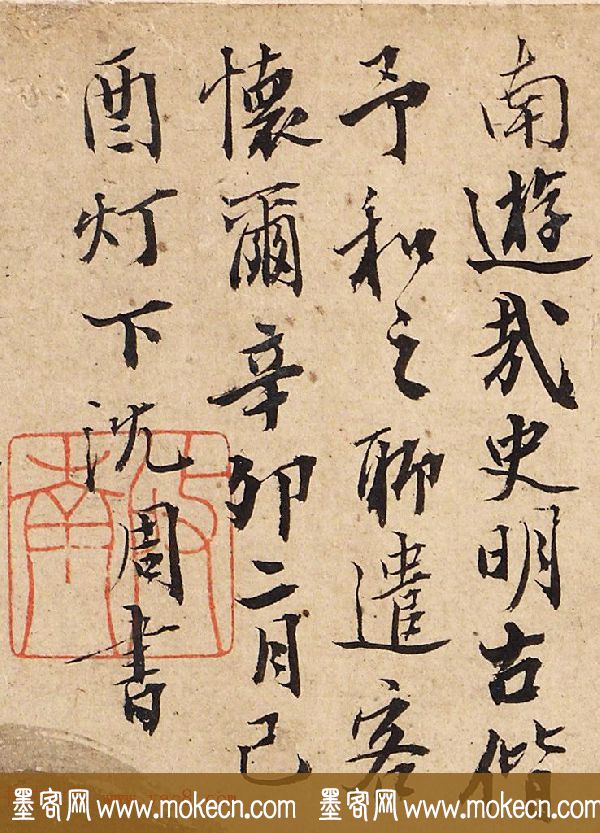 南遊哉史明古偕
予和之聊遣客
懷爾辛卯二月己
酉灯下沈周書
啟南
墨客网 www.mokecn.com 墨客网 www.mokecn.com